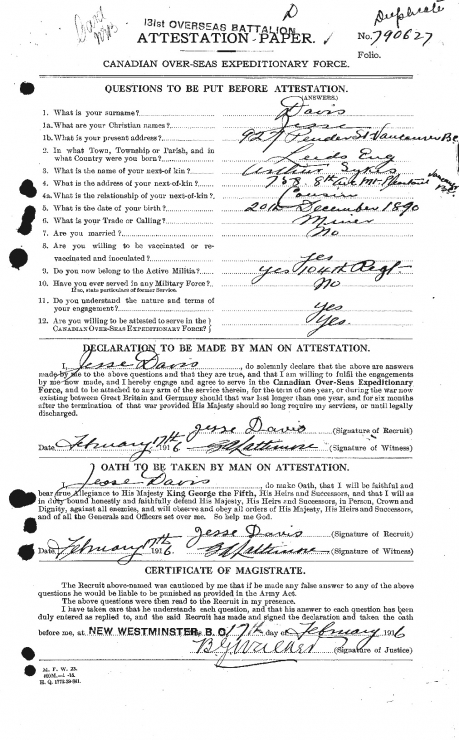 Duplicate
131ST OVERSEAS BATTALION
D
ATTESTATION PAPER.
No. 790627
Folio.
CANADIAN OVER-SEAS EXPEDITIONARY FORCE.
QUESTIONS TO BE PUT BEFORE ATTESTATION.
(ANSWERS.)
1. What is your surname? Davis
1a. What are your Christian names? Jesse
1b. What is your present address? 927 Pender St Vancouver BC
2. In what Town, Township or Parish, and in
what Country were you born? Leeds Eng
3. What is the name of your next-of kin? Arthur Sykes
4. What is the address of your next-of-kin? 768 8th Ave Mt. Pleasant
4a. What is the relationship of your next-of-kin? Cousin
5. What is the date of your birth? 20th December 1890
6. What is your Trade or Calling? Miner
7. Are you married? No
8. Are you willing to be vaccinated or re-
vaccinated and inoculated? yes
9. Do you now belong to the Active Militia? yes 104th Regt.
10. Have you ever served in any Military Force? No
If so, state particulars of former Service.
11. Do you understand the nature and terms of
your engagement? yes
12. Are you willing to be attested to serve in the
CANADIAN OVER-SEAS EXPEDITIONARY FORCE? Yes.
DECLARATION TO BE MADE BY MAN ON ATTESTATION.
I, Jesse Davis, do solemnly declare that the above are answers
made by me to the above questions and that they are true, and that I am willing to fulfil the engagements
by me now made, and I hereby engage and agree to serve in the Canadian Over-Seas Expeditionary
Force, and to be attached to any arm of the service therein, for the term of one year, or during the war now
existing between Great Britain and Germany should that war last longer than one year, and for six months
after the termination of that war provided His Majesty should so long require my services, or until legally
discharged.
Jesse Davis (Signature of Recruit)
Date February 17th 1916 (Signature of Witness)
OATH TO BE TAKEN BY MAN ON ATTESTATION.
I, Jesse Davis, do make Oath, that I will be faithful and
bear true Allegiance to His Majesty King George the Fifth, His Heirs and Successors, and that I will as
in duty bound honestly and faithfully defend His Majesty, His Heirs and Successors, in Person, Crown and
Dignity, against all enemies, and will observe and obey all orders of His Majesty, His Heirs and Successors,
and of all the Generals and Officers set over me. So help me God.
Jesse Davis (Signature of Recruit)
Date February 17th 1916 (Signature of Witness)
CERTIFICATE OF MAGISTRATE.
The Recruit above-named was cautioned by me that if he made any false answer to any of the above
questions he would be liable to be punished as provided in the Army Act.
The above questions were then read to the Recruit in my presence.
I have taken care that he understands each question, and that his answer to each question has been
duly entered as replied to, and the said Recruit has made and signed the declaration and taken the oath
before me, at NEW WESTMINSTER, B.C. 17th day of February 1916
(Signature of Justice)
M. F. W. 23.
H. Q. 1772-39-841.